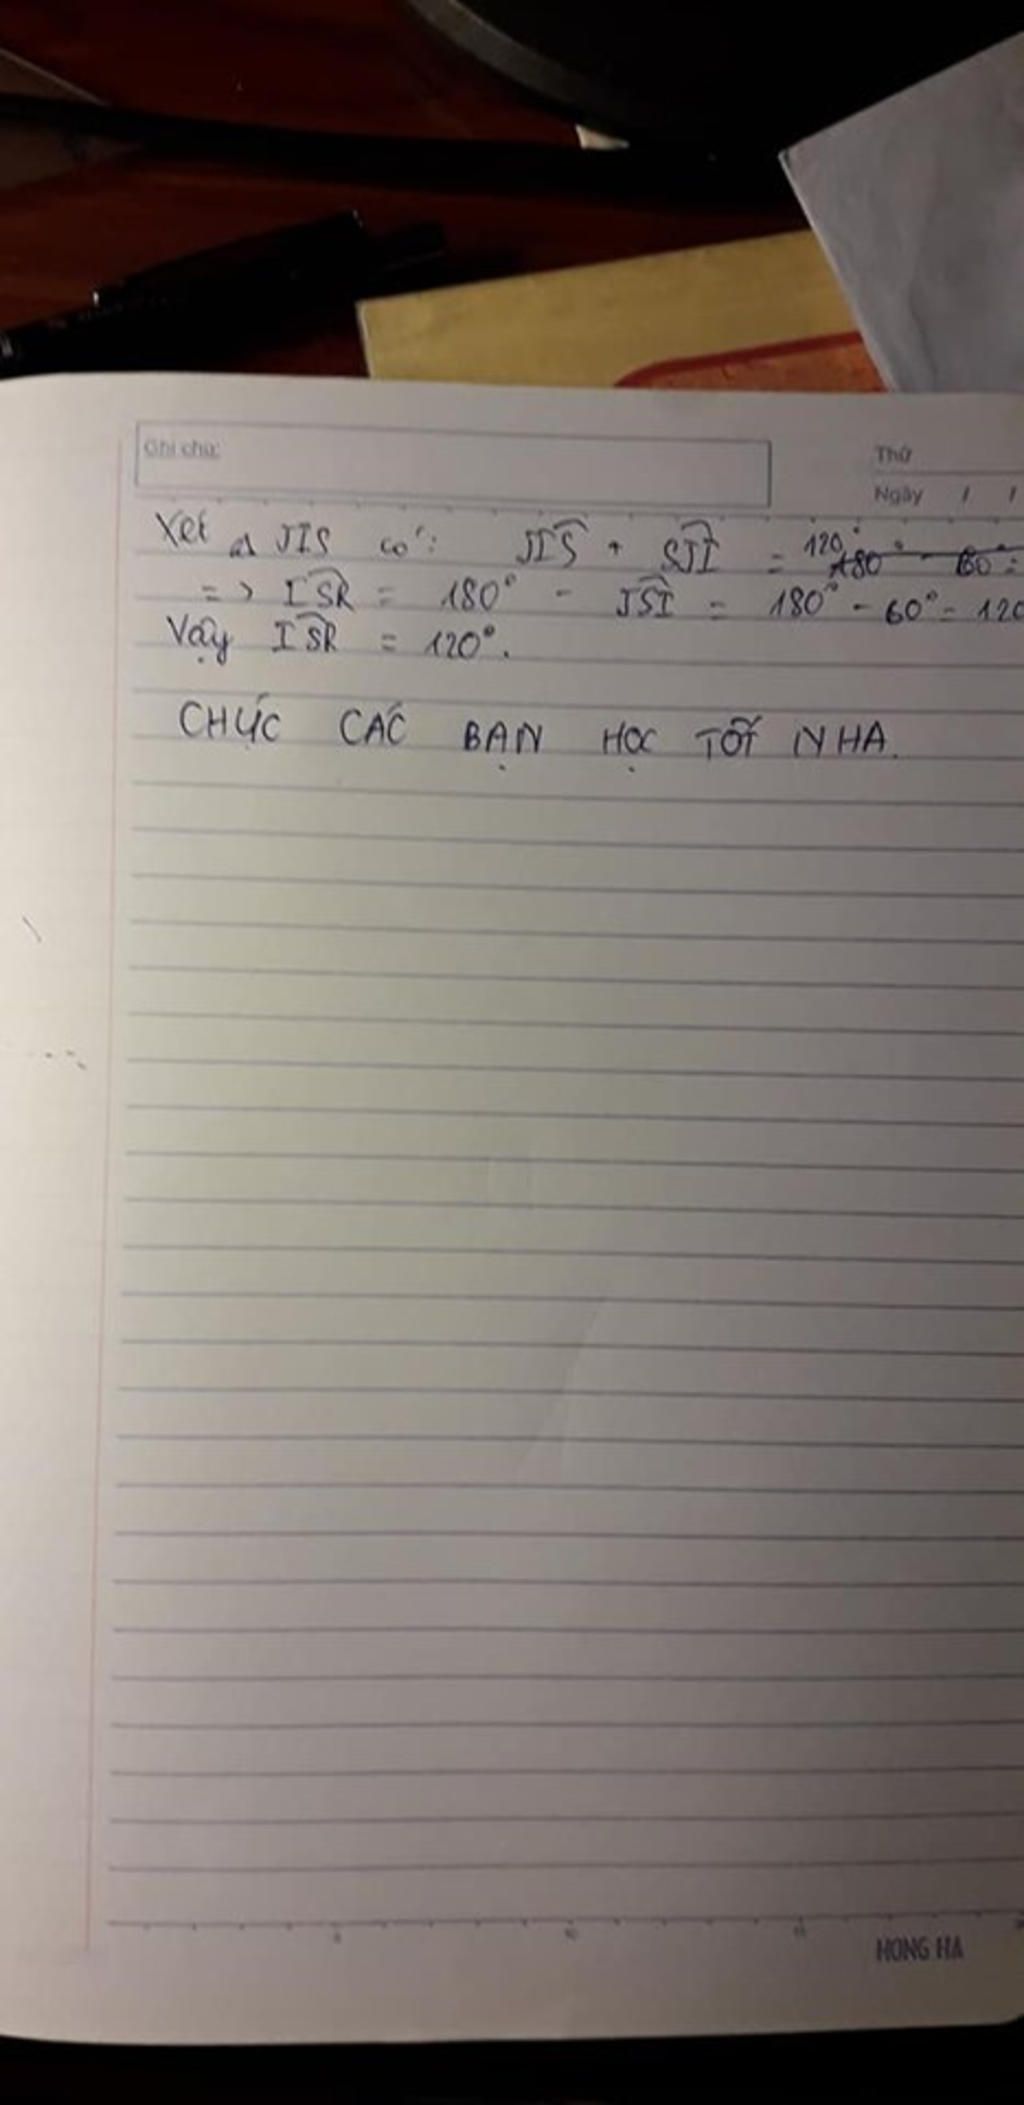 Ghi chú:
Thứ
Ngày / /
Xét Δ JIS có: JIS + SJI = 120° 180° - 60° =
=> ISR = 180° - JSI = 180° - 60° = 120
Vậy ISR = 120°.
CHÚC CÁC BẠN HỌC TỐT NHA.
5 10 15
HONG HA